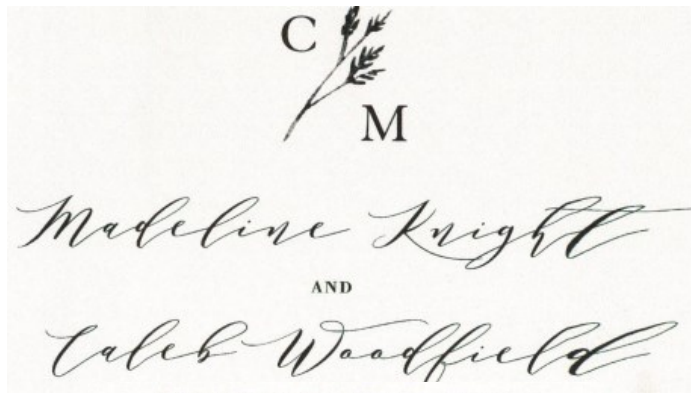 C
M
Madeline Knight
AND
Caleb Woodfield